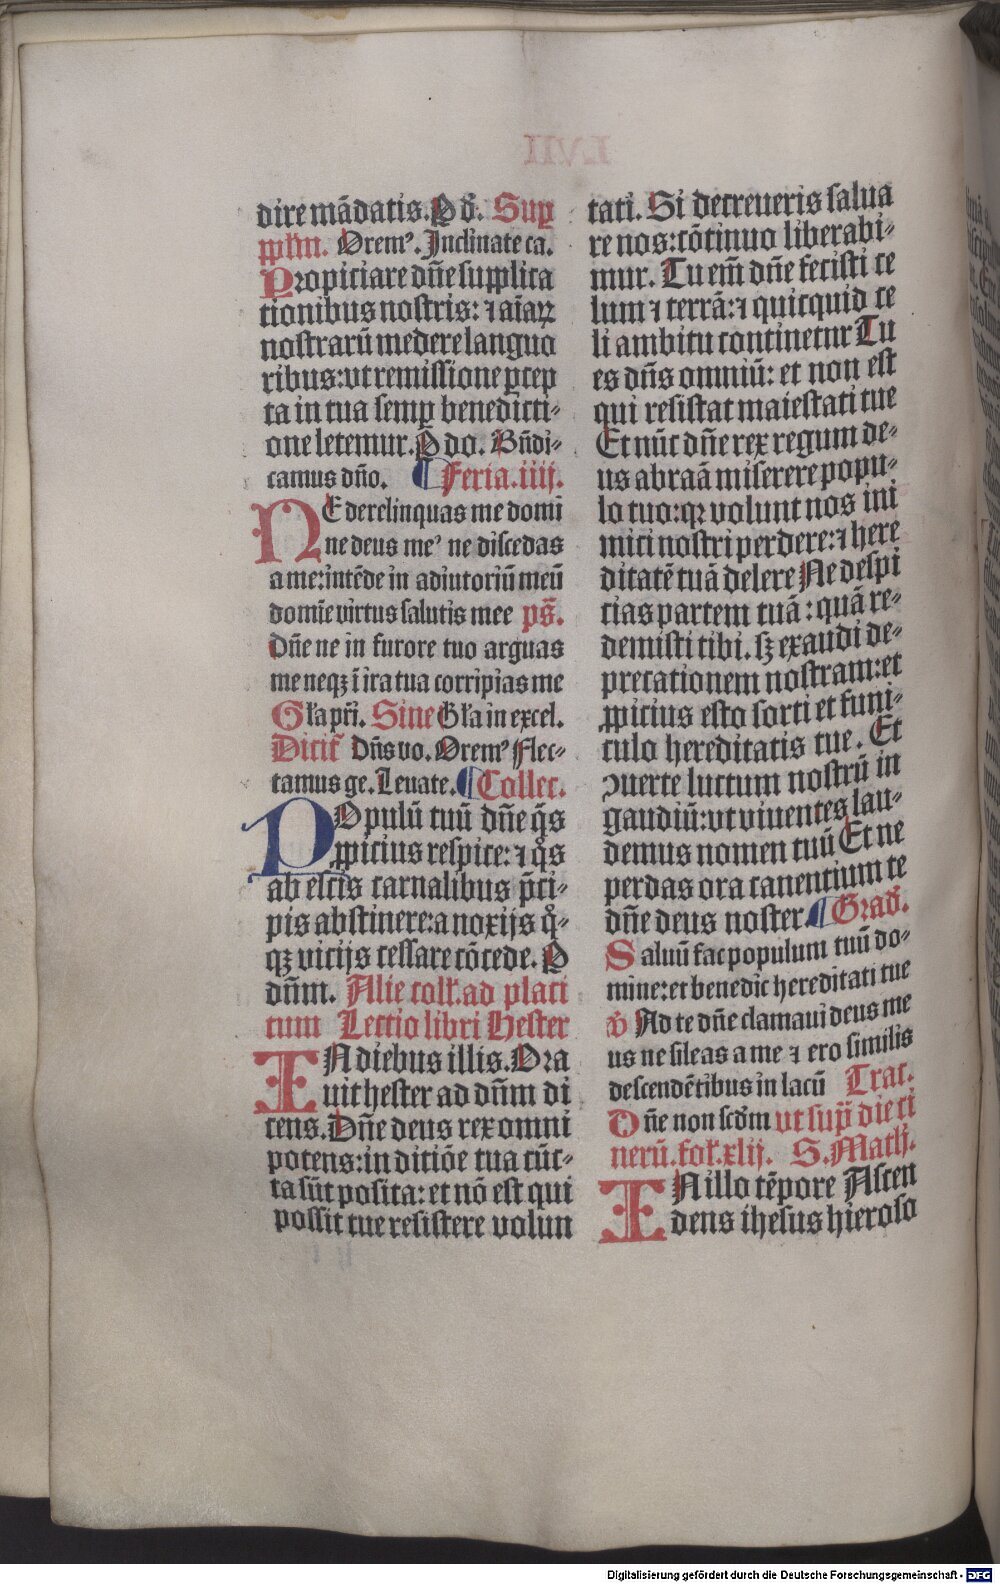 dire mādatis. P d̄. Sup
pplm̄. Orem⁹. Inclinate ca.
Propiciare dn̄e supplica
tionibus nostris: ⁊ aīaꝝ
nostrarū medere languo
ribus: vt remissione ꝑcep
ta in tua semꝑ benedicti-
one letemur. P do. Bn̄di-
camus dn̄o. ¶ Feria. iiij.
NE derelinquas me domi
ne deus me⁹ ne discedas
a me: intēde in adiutoriū meū
domīe virtus salutis mee ps̄.
Dn̄e ne in furore tuo arguas
me neqꝫ ī ira tua corripias me
Gl̄a pr̄i. Sine Gl̄a in excel.
Dicit̄ Dn̄s vo. Orem⁹ Flec-
tamus ge. Leuate. ¶ Collec.
POpulū tuū dn̄e q̄s
ꝓpicius respice: ⁊ q̊s
ab escis carnalibus p̄ci-
pis abstinere: a noxijs q̊-
qꝫ vicijs cessare cōcede. P
dn̄m. Alie coll̄. ad placi
tum Lectio libri Hester
IN diebus illis. Ora
uit hester ad dn̄m di
cens. Dn̄e deus rex omni
potens: in diciōe tua cūc-
ta sūt posita: et nō est qui
possit tue resistere volun
tati. Si decreueris salua
re nos: cōtinuo liberabi-
mur. Tu em̄ dn̄e fecisti ce
lum ⁊ terrā: ⁊ quicquid ce
li ambitu continetur Tu
es dn̄s omniū: et non est
qui resistat maiestati tue
Et nūc dn̄e rex regum de-
us abraā miserere popu-
lo tuo: qꝛ volunt nos ini
mici nostri perdere: ⁊ here
ditatē tuā delere Ne despi
cias partem tuā: quā re-
demisti tibi. sꝫ exaudi de-
precationem nostram: et
ꝓpicius esto sorti et funi-
culo hereditatis tue. Et
ↄuerte luctum nostrū in
gaudiū: vt viuentes lau-
demus nomen tuū Et ne
perdas ora canentium te
dn̄e deus noster. ¶ Grad̄.
Saluū fac populum tuū do-
mine: et benedic hereditati tue
℣ Ad te dn̄e clamaui deus me
us ne sileas a me ⁊ ero similis
descendētibus in lacū Trac.
Dn̄e non scd̄m vt sup̄ die ci
nerū. fol̄. xlij. S. Math.
IN illo tēpore Ascen
dens ihesus hieroso
Digitalisierung gefördert durch die Deutsche Forschungsgemeinschaft - DFG